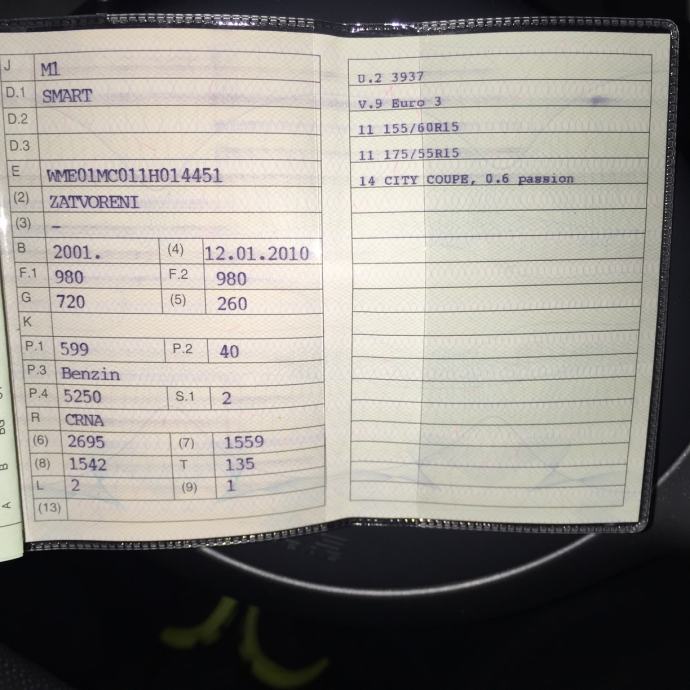 J M1
D.1 SMART
D.2
D.3
E WME01MC011H014451
(2) ZATVORENI
(3) -
B 2001. (4) 12.01.2010
F.1 980 F.2 980
G 720 (5) 260
K
P.1 599 P.2 40
P.3 Benzin
P.4 5250 S.1 2
R CRNA
(6) 2695 (7) 1559
(8) 1542 T 135
L 2 (9) 1
(13)
U.2 3937
V.9 Euro 3
11 155/60R15
11 175/55R15
14 CITY COUPE, 0.6 passion
A B